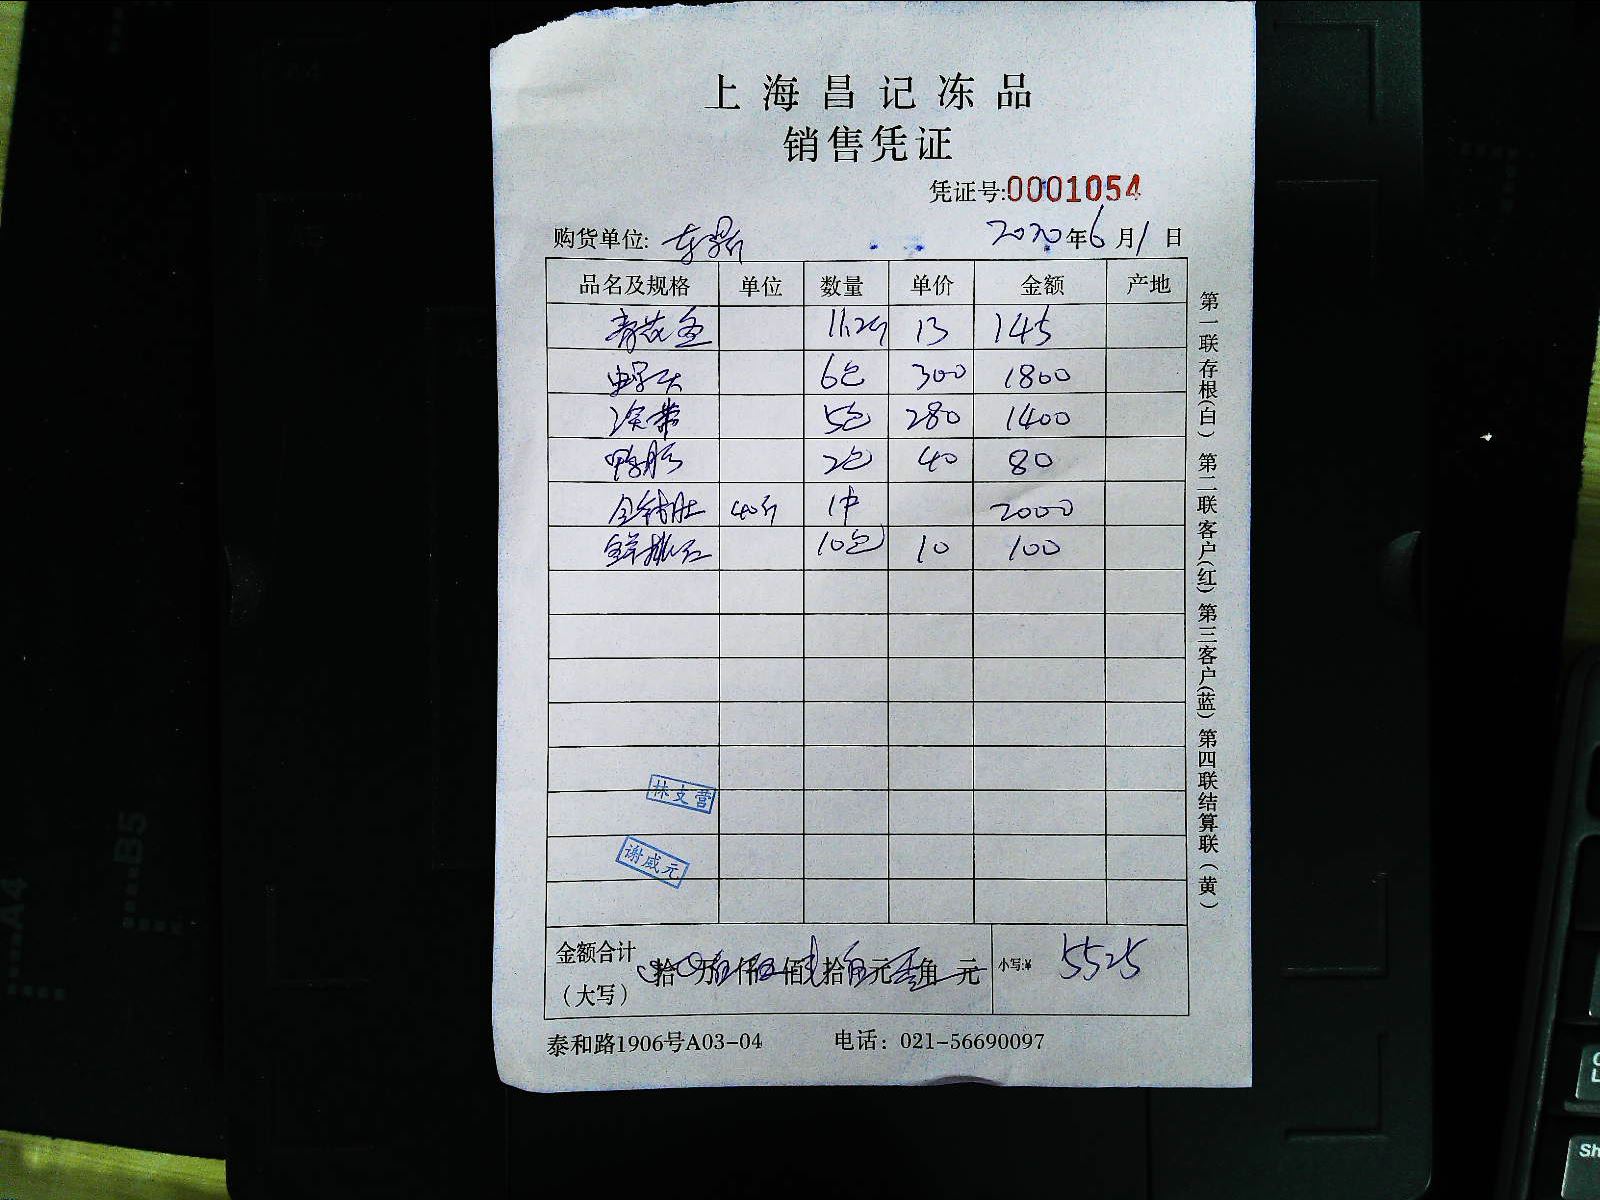 上海昌记冻品
销售凭证
凭证号:0001054
购货单位: 2020年6月1日
品名及规格 单位 数量 单价 金额 产地
青花鱼 11.2斤 13 145
6包 300 1800
5包 280 1400
2包 40 80
金钱肚 40斤 1件 2000
10包 10 100
林支营
谢威元
金额合计 拾 万 仟 佰 拾 元 角 元 小写:¥ 5525
(大写)
泰和路1906号A03-04 电话: 021-56690097
第一联存根(白) 第二联客户(红) 第三客户(蓝) 第四联结算联(黄)
A4
B5